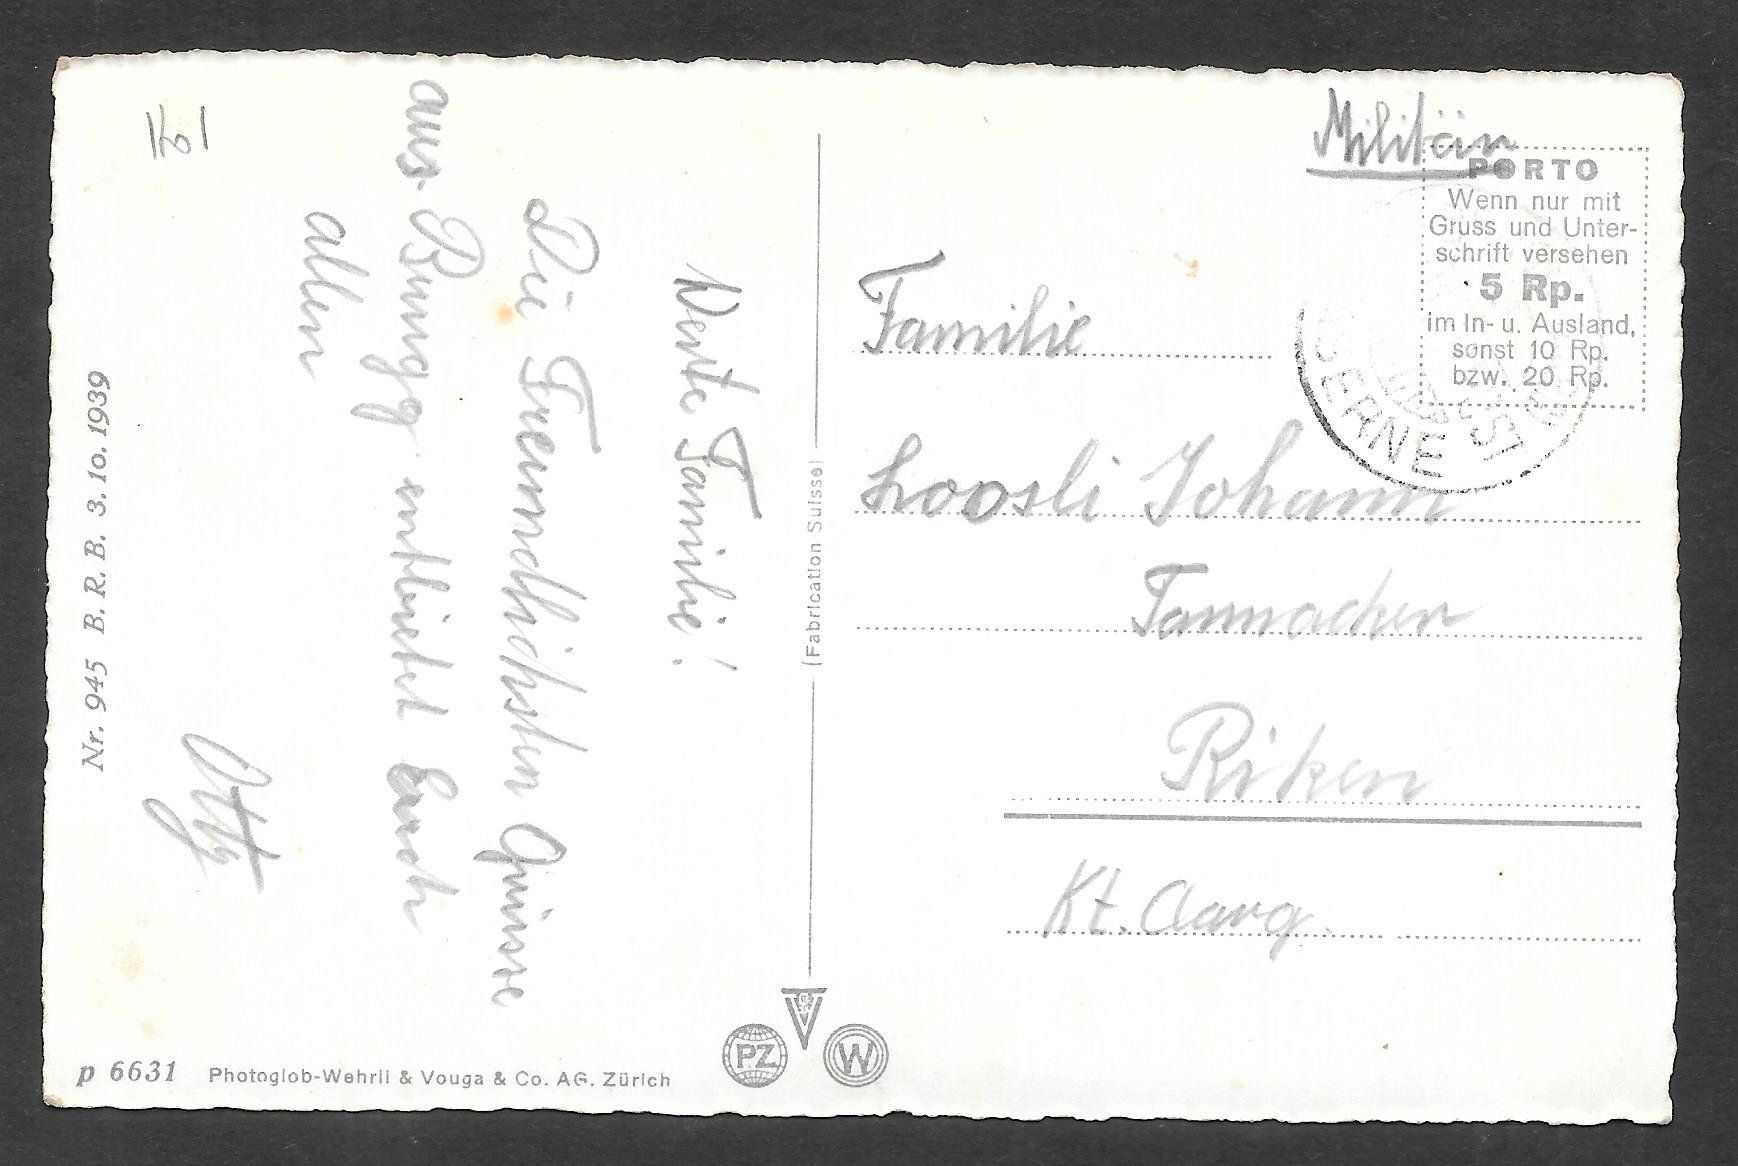 Kol
Werte Familie!
Die Freundlichsten Grüsse
aus Brugg entbietet Euch
allen
Otto
Nr. 945 B. R. B. 3. 10. 1939
p 6631 Photoglob-Wehrli & Vouga & Co. AG. Zürich
(Fabrication Suisse)
PZ
W
Militär
PORTO
Wenn nur mit
Gruss und Unter-
schrift versehen
5 Rp.
im In- u. Ausland,
sonst 10 Rp.
bzw. 20 Rp.
Familie
Loosli Johann
Tannacher
Riken
Kt. Aarg.